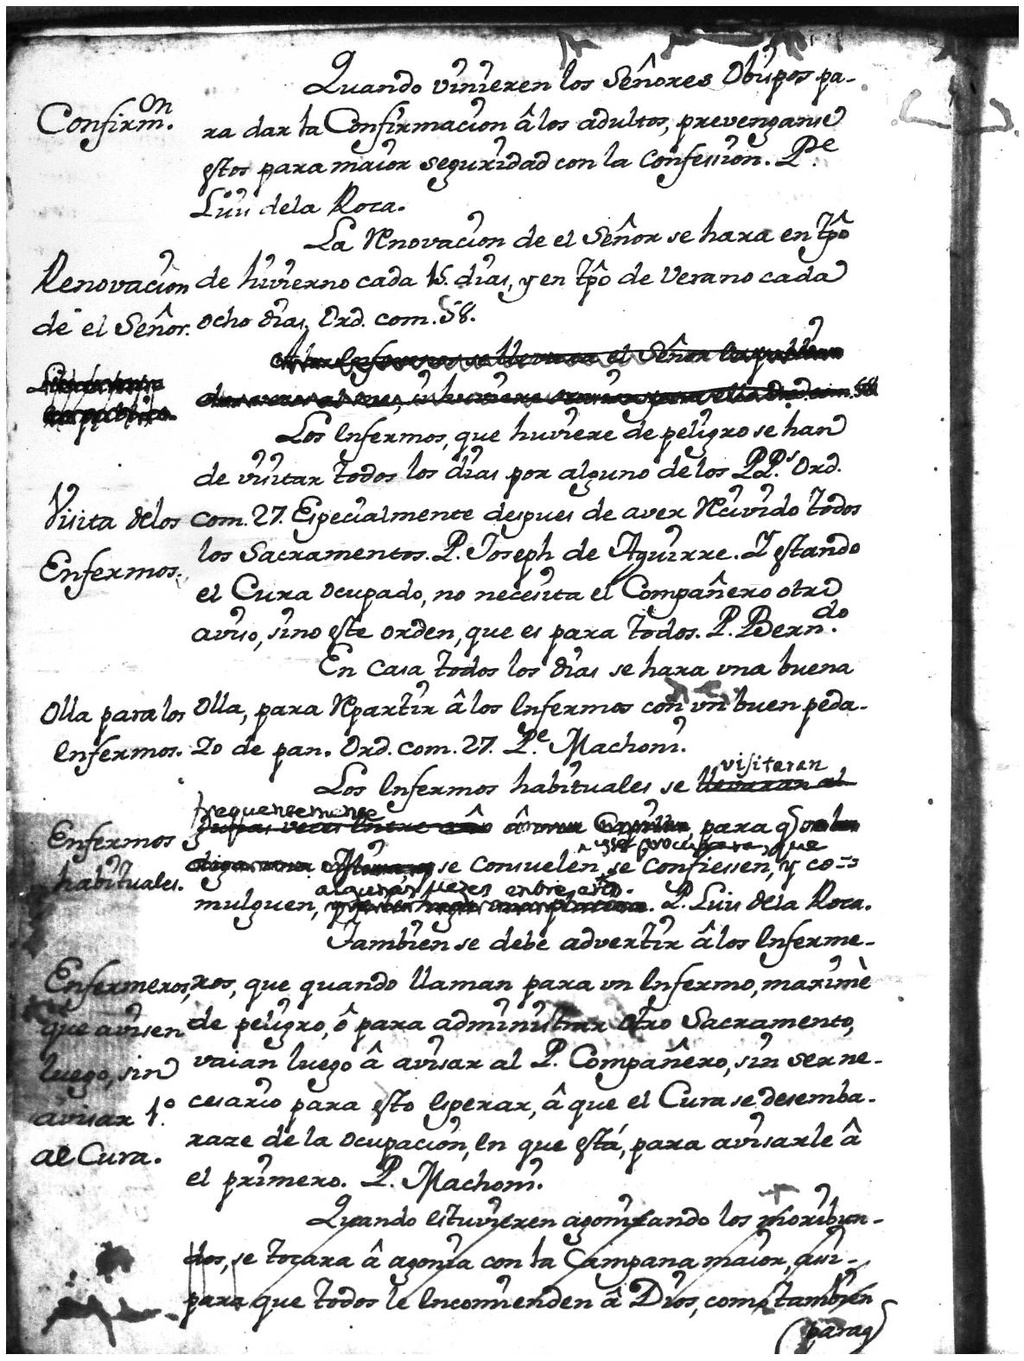 Quando vinieren los Señores Obispos pa-
Confirm.on
ra dar la Confirmacion â los adultos, prevenganse
estos para maior seguridad con la Confession. P.e
Luis dela Roca.
La Renovacion de el Señor se hara en tpô
Renovacion
de hivierno cada 15. dias, y en tpô de Verano cada
de el Señor.
ocho dias, Ord. com. 58.
el Señor
58.
Los Enfermos, que huviere de peligro se han
de visitar todos los dias por alguno de los PP.s Ord.
Visita delos
com. 27. Especialmente despues de aver Recivido todos
los Sacramentos. P. Joseph de Aguirre. Y estando
Enfermos.
el Cura ocupado, no necesita el Compañero otro
aviso, sino este orden, que es para todos. P. Bern.do
En Casa todos los dias se hara vna buena
Olla para los
Olla, para Repartir â los Enfermos con vn buen peda-
enfermos.
zo de pan. Ord. com. 27. P.e Machoni.
visitaran
Los Enfermos habituales se llevaran al
frequentemente
Enfermos
para q
que
habituales.
se consuelen, se Confiessen, y co=
algunas vezes entre año.
mulguen, P. Luis dela Roca.
Tambien se debe advertir â los Enferme-
Enfermeros,
ros, que quando llaman para vn Enfermo, maximè
que avisen
de peligro, ô para administrar otro Sacramento,
luego, sin
vaian luego â avisar al P. Compañero, sin ser ne-
avisar 1.o
cesario para esto esperar, â que el Cura se desemba-
al Cura.
raze de la ocupacion, en que está, para avisarle â
el primero. P. Machoni.
Quando estuvieren agonizando los moribun-
dos, se tocara â agonia con la Campana maior, assi-
para que todos le encomienden â Dios, como tambien
paraq